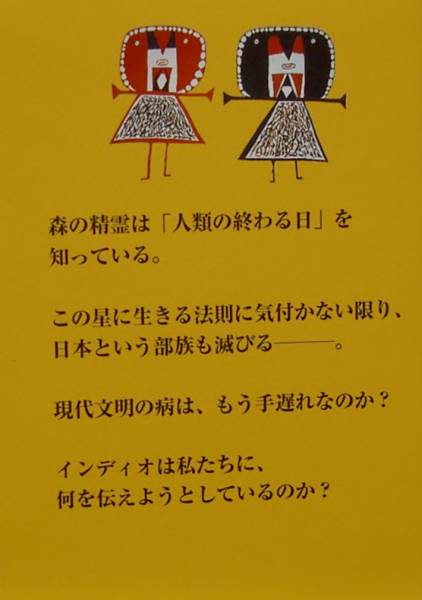 森の精霊は「人類の終わる日」を
知っている。
この星に生きる法則に気付かない限り、
日本という部族も滅びる―――。
現代文明の病は、もう手遅れなのか？
インディオは私たちに、
何を伝えようとしているのか？